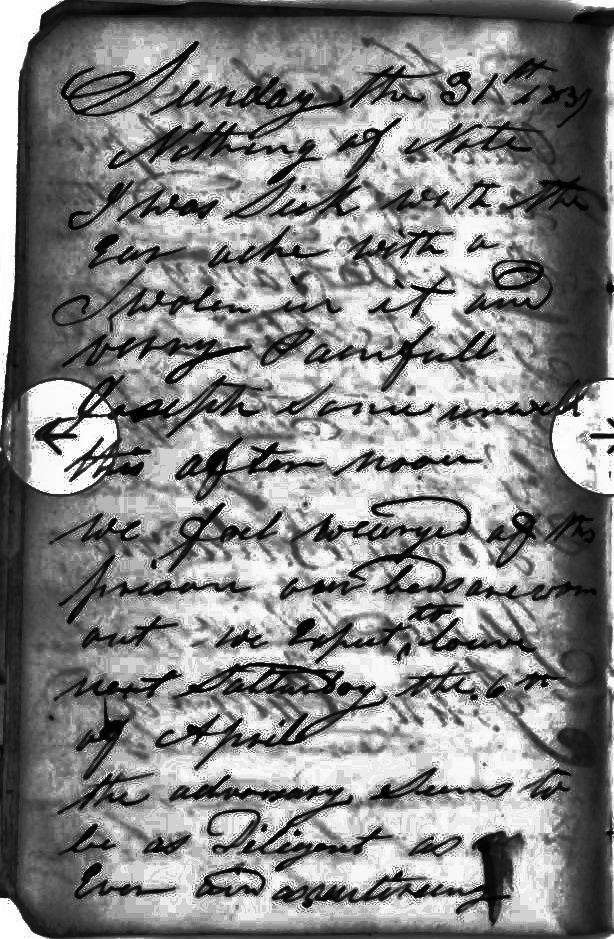 Sunday the 31th 1839
Nothing of Note
I was Sick with the
Ear ache with a
Swolen in it and
verry Painfull
Joseph Some unwell
this after noon
we feel wearyed of this
prison our beds are worn
out we Expect, to leave
next Satturday the 6th
of April
the adversary seems to
be as Diligent as
Ever and